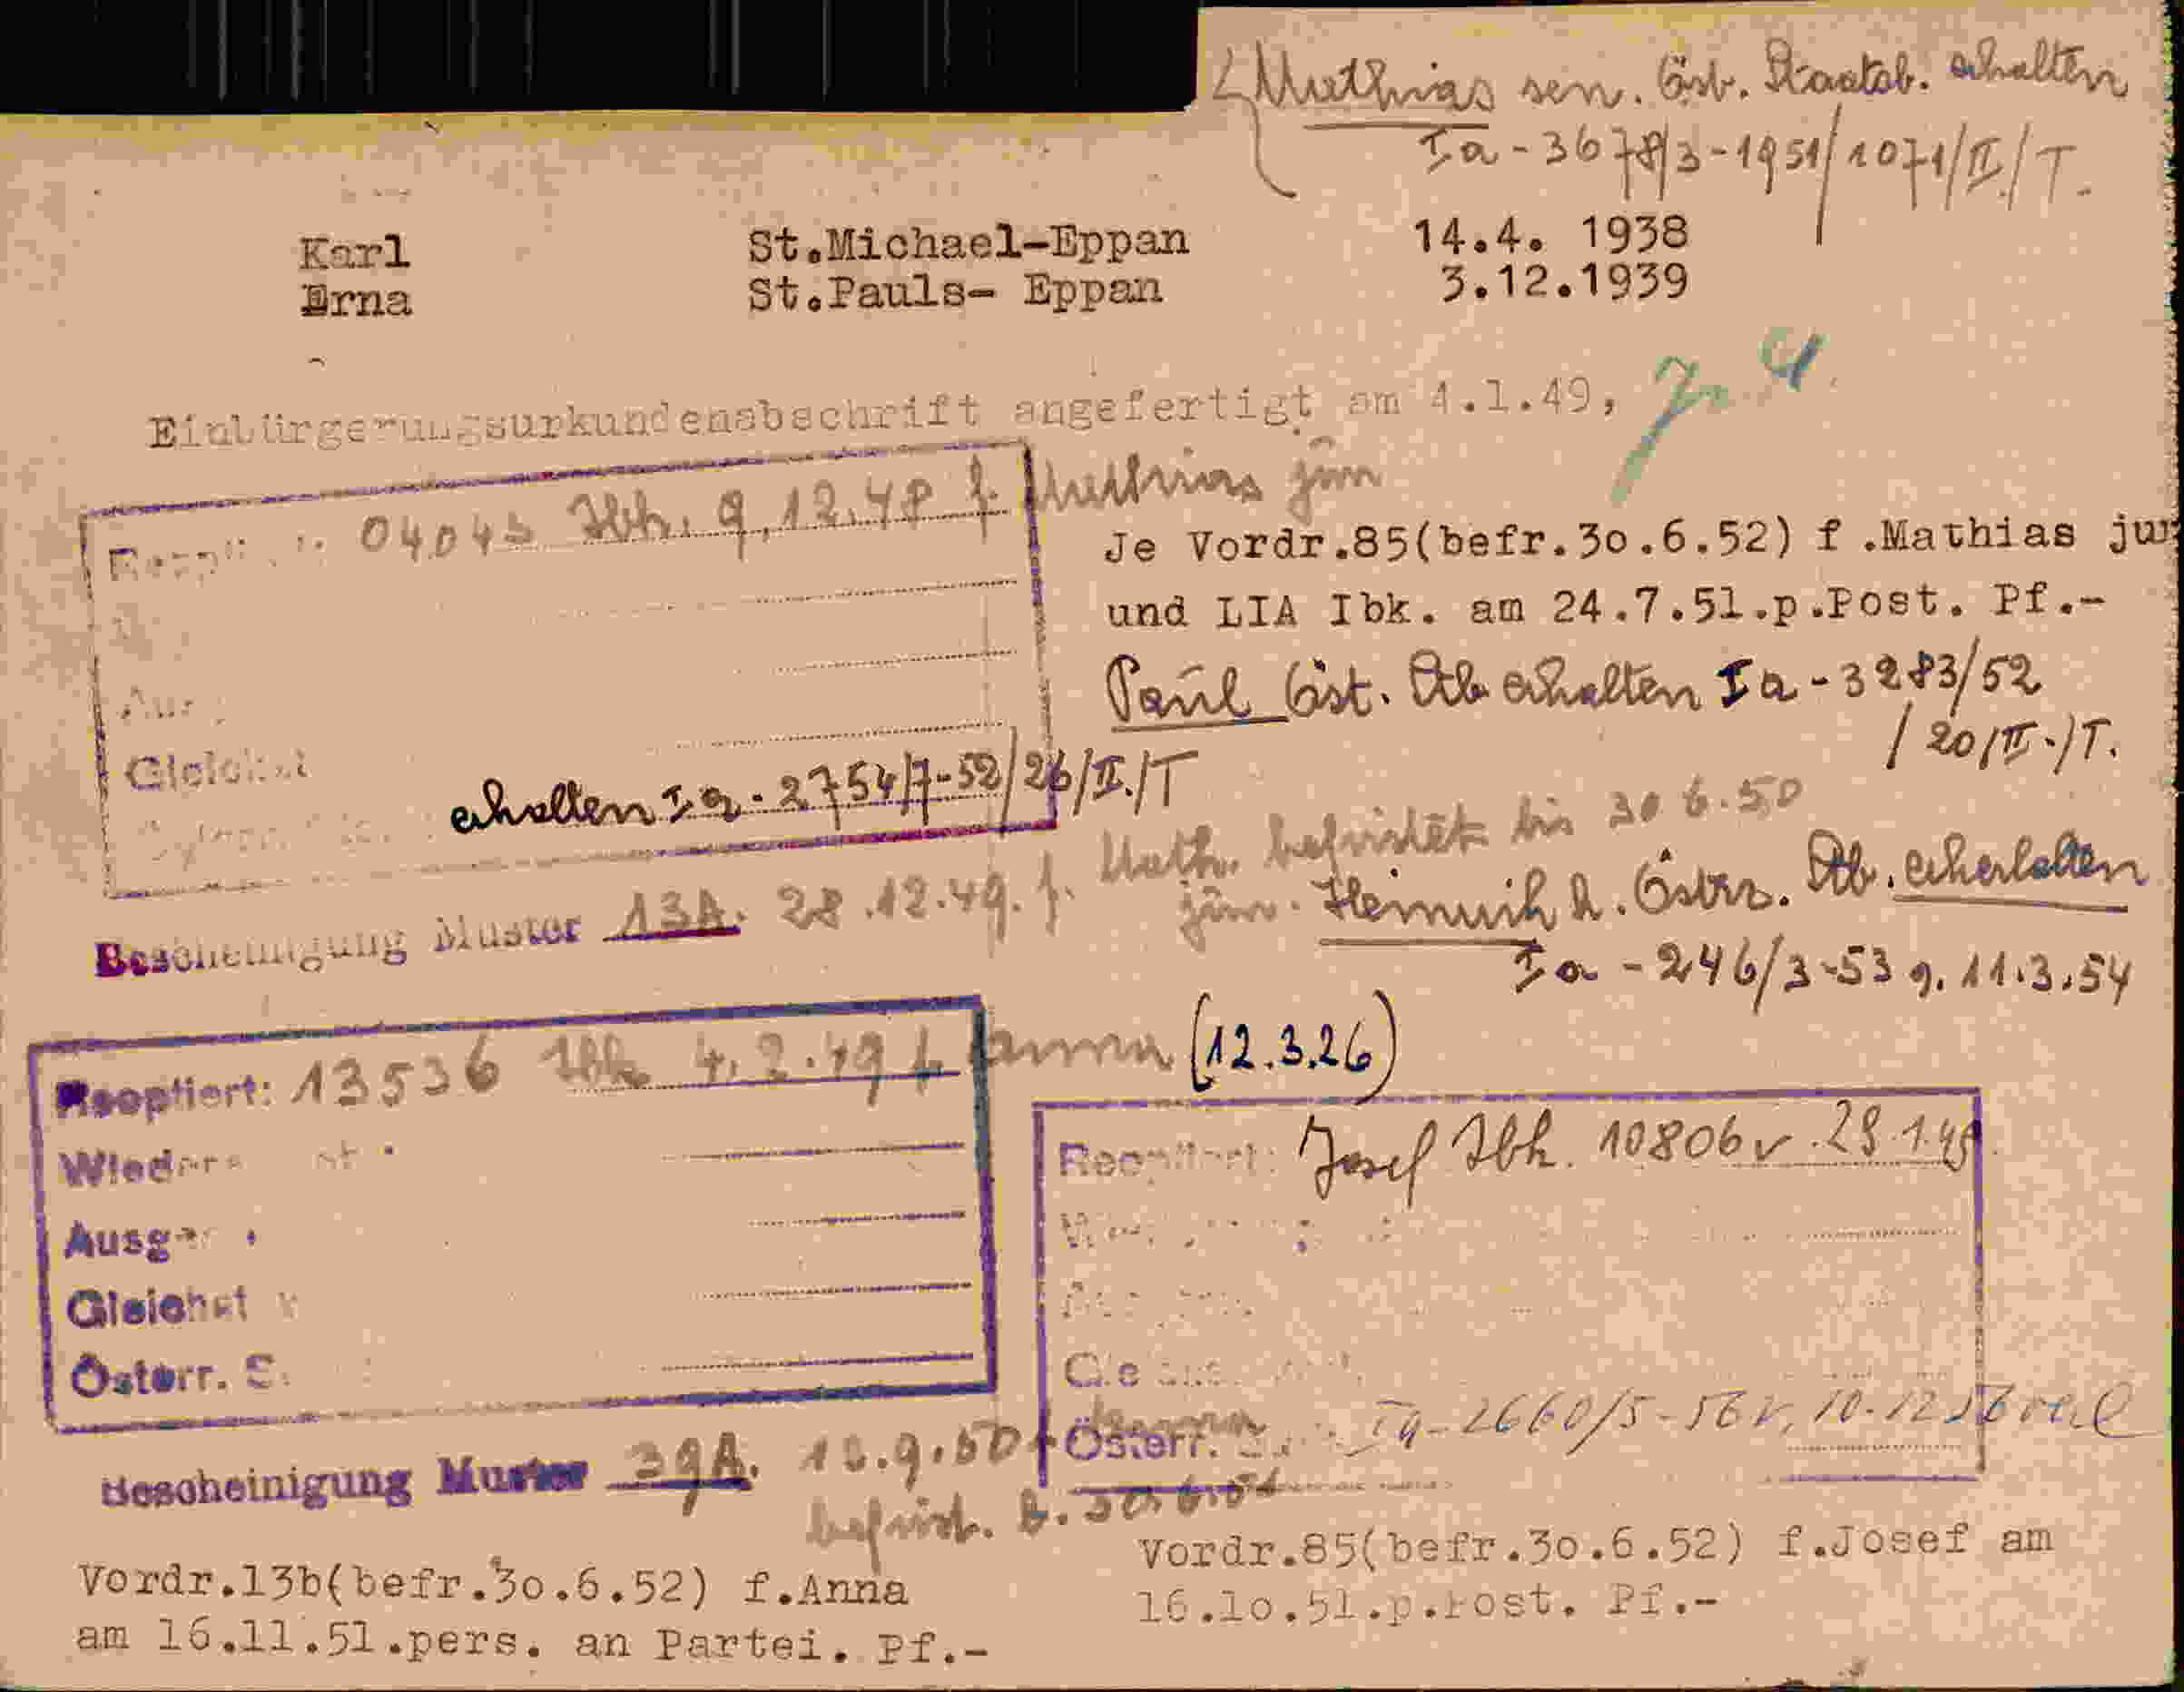 Mathias sen. Öst. Staatsb. erhalten
Ia - 3678/3 - 1951/1071/II./T.
Karl St.Michael-Eppan 14.4. 1938
Erna St.Pauls- Eppan 3.12.1939
Einbürgerungsurkundenabschrift angefertigt am 4.1.49,
Reoptiert: 04043 Ibk. 9.12.48 f. Mathias jun
Je Vordr.85(befr.30.6.52) f .Mathias jun
und LIA Ibk. am 24.7.51.p.Post. Pf.-
Paul Öst. Stb erhalten Ia - 3283/52
/ 20/II./T.
Gleichst
erhalten Ia - 2754/7-52/26/II./T
Bescheinigung Muster 13A. 28.12.49. f. Math. jun. befristet bis 30.6.50
Heinrich h. Östrr. Stb. erherlalten
Ia - 246/3-53 v. 11.3.54
Reoptiert: 13536 Ibk 4.2.49 f. Anna (12.3.26)
Wieder
Ausge
Gleichst
Österr. S.
Reoptiert: Josef Ibk. 10806 v. 29.1.49
Österr. Ia-2660/5-56 v. 10.12.56
Bescheinigung Muster 39A. 18.9.50 f. Anna
befrist. b. 30.6.51
Vordr.13b(befr.30.6.52) f.Anna
am 16.11.51.pers. an Partei. Pf.-
Vordr.85(befr.30.6.52) f.Josef am
16.10.51.p.Post. Pf.-